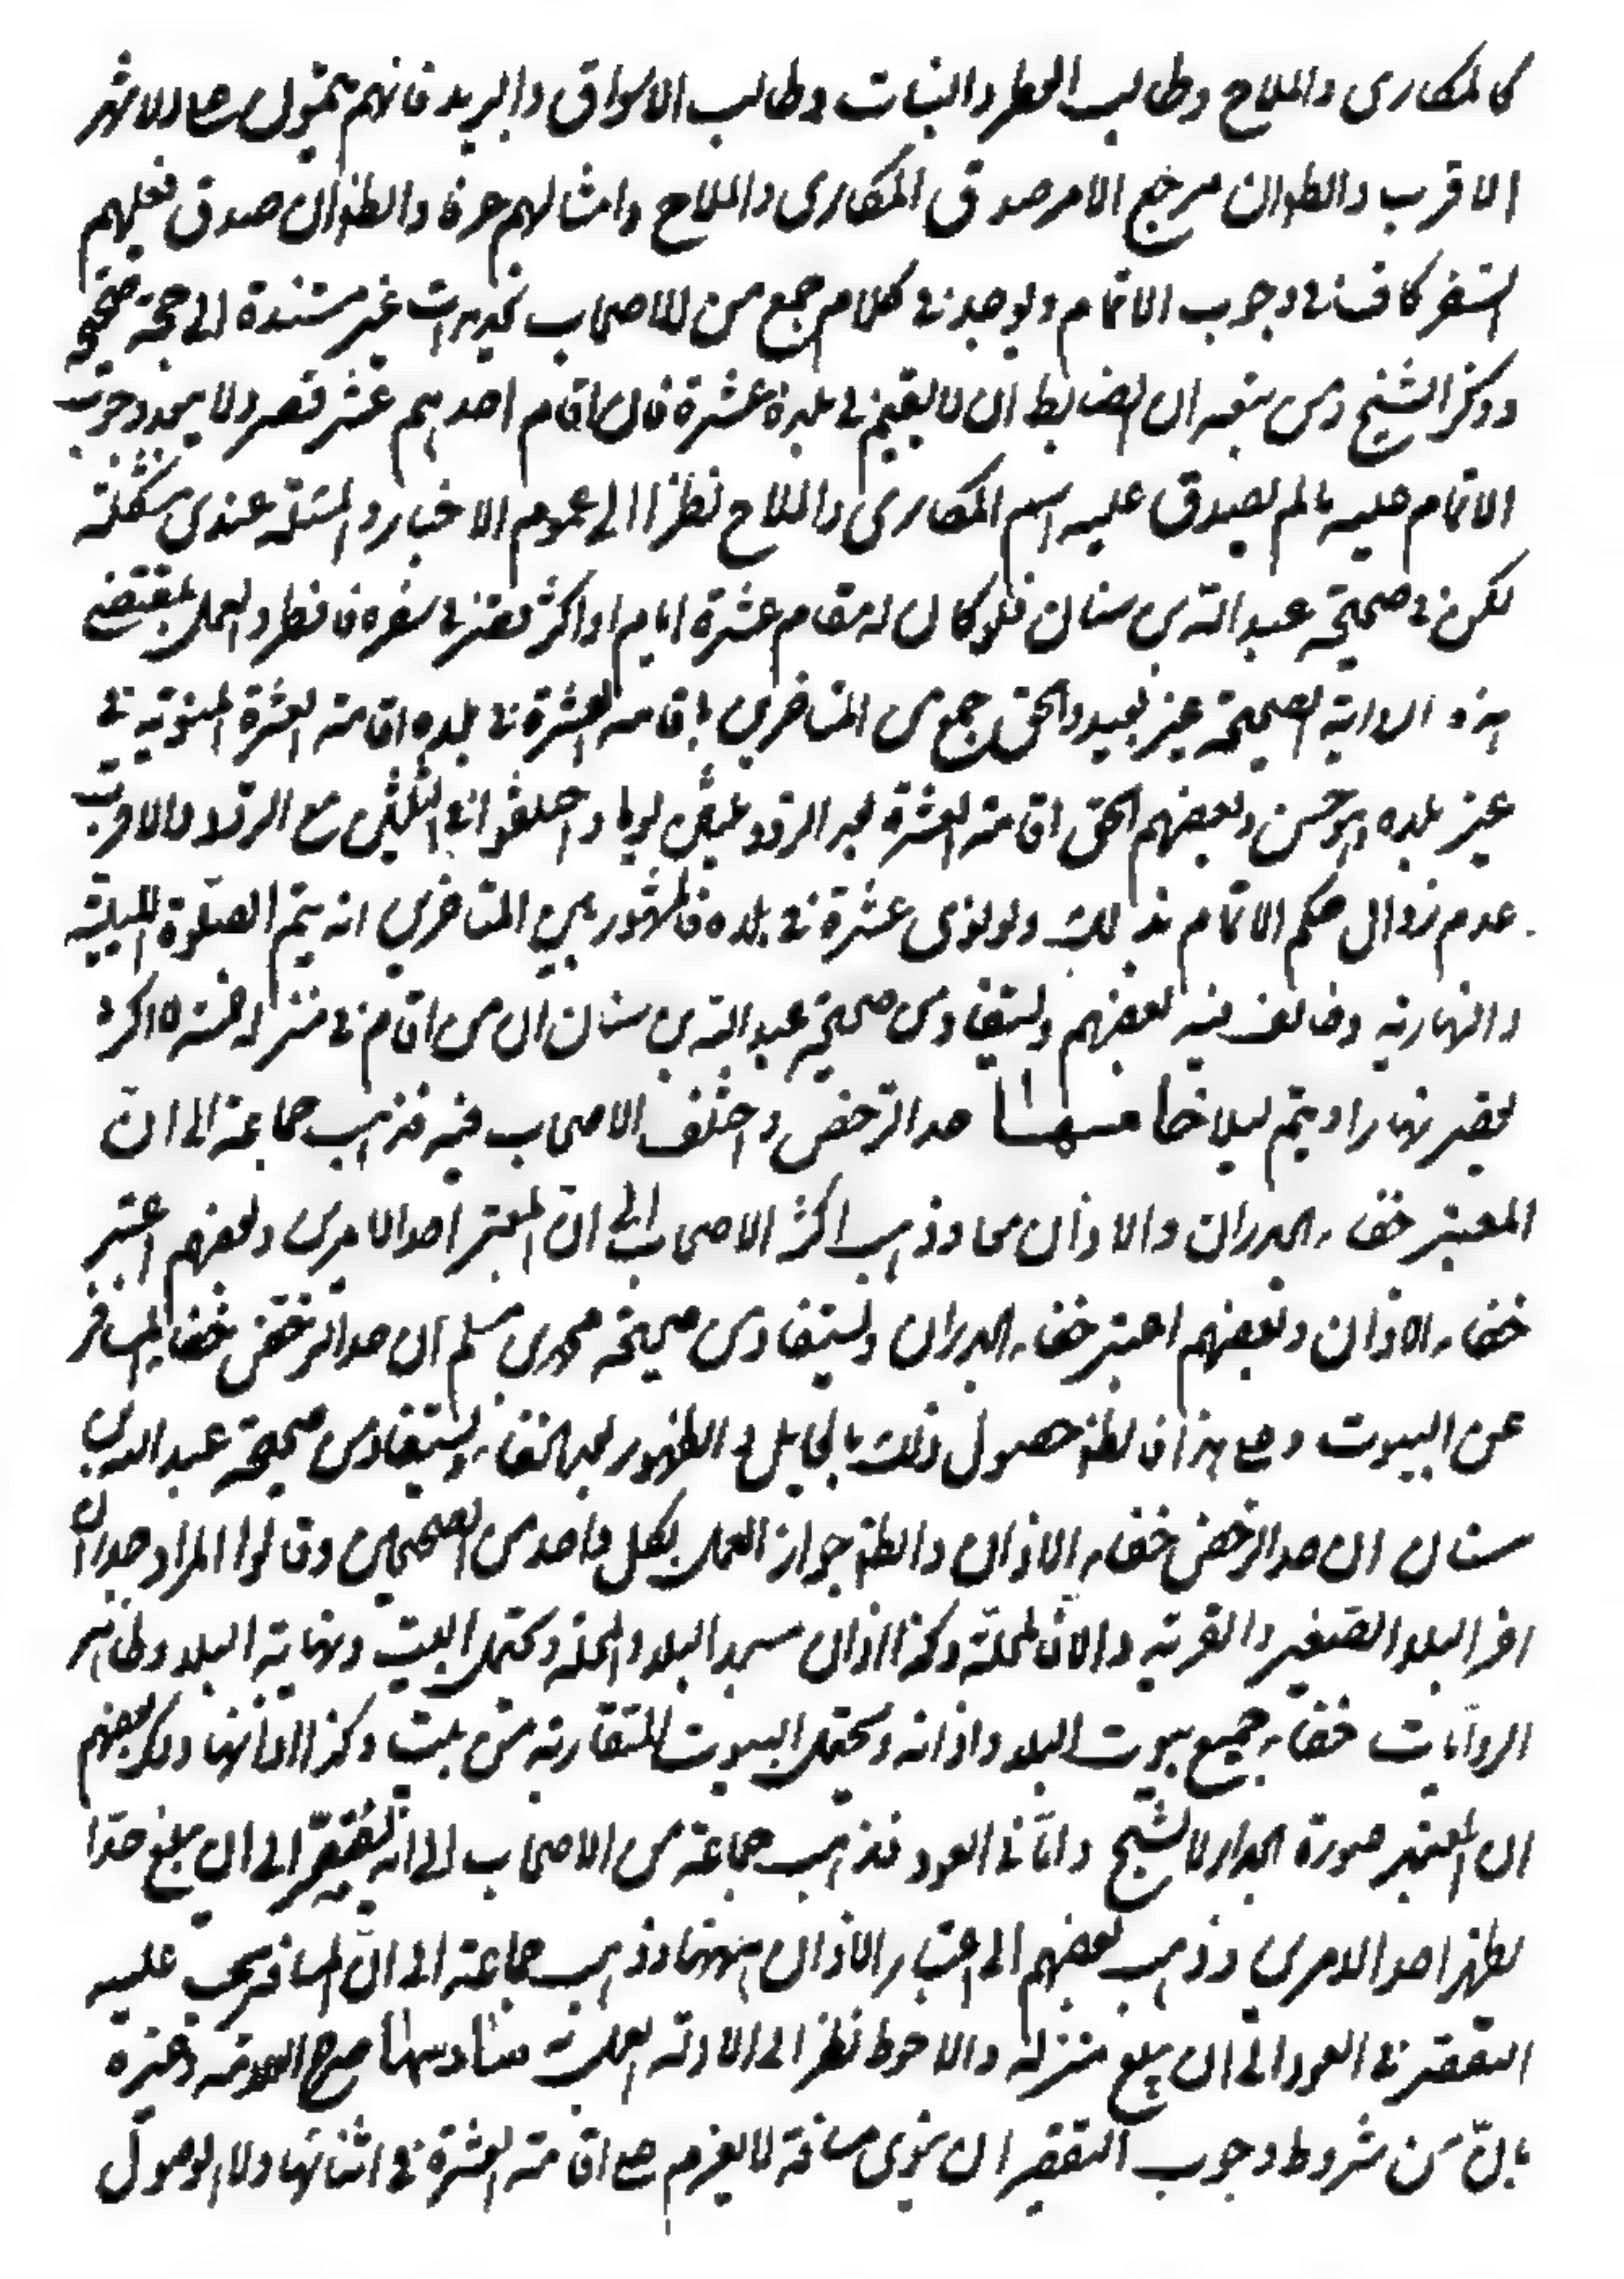 كالمكارى والملاح وطالب القطر والنبات وطالب الاسواق والبريد فانهم يتمون على الاشهر
الاقرب والظ ان مرجع الامر صدق المكارى والملاح وامثالهم عرفا والظ ان صدق فعلهم
السفر كاف فى وجوب الاتمام ويوجد فى كلام جمع من الاصحاب تحديدات غير مستندة الى حجة صحيحة
وذكر الشيخ ومن تبعه ان الضابط ان لا يقيم فى بلده عشرة فان اقام احدهم عشر قصر ولا يجد وجوب
الاتمام عليه مالم يصدق عليه اسم المكارى والملاح نظرا الى عموم الاخبار والمسئلة عندى مشكلة
لكن فى صحيحة عبد الله بن سنان فلو كان له مقام عشرة ايام او اكثر قصر فى سفره فافطر والعمل بمقتضى
هذه الرواية الصحيحة غير بعيد والحق جمع من المتاخرين باقامة العشرة فى بلده اقامة العشرة المنوية فى
غير بلده وهو حسن وبعضهم الحق اقامة العشرة بعد التردد ثلثين يوما واختلفوا فى الثلثين مع التردد والاقرب
عدم زوال حكم الاتمام بذلك ولو نوى عشرة فى بلده فالمشهور بين المتاخرين انه يتم الصلوة الليلية
والنهارية وخالف فيه بعضهم ويستفاد من صحيحة عبد الله بن سنان ان من اقام فى منزله خمسة او اكثر
يقصر نهارا ويتم ليلا خامسها حد الترخص واختلف الاصحاب فيه فذهب جماعة الى ان
المعتبر خفاء الجدران والاذان معا وذهب اكثر الاصحاب الى ان المعتبر احد الامرين وبعضهم اعتبر
خفاء الاذان وبعضهم اعتبر خفاء الجدران ويستفاد من صحيحة محمد بن مسلم ان حد الترخص خفاء المسافر
عن البيوت ومع هذا فالظ حصول ذلك بالحايل و الظهور بعد الخفاء ويستفاد من صحيحة عبد الله بن
سنان ان حد الترخص خفاء الاذان والظ جواز العمل بكل واحد من الصحيحين وقالوا المراد جدران
اخر البلد الصغير والقرية والا فالمحلة وكذا اذان مسجد البلد والمحلة ويحتمل البيت ونهاية البلد وظاهر
الروايات خفاء جميع بيوت البلد واذانه ويحتمل البيوت المتقاربة من بيت وكذا اذانها وذكر بعضهم
ان المعتبر صورة الجدار لا الشبح واما فى العود فذهب جماعة من الاصحاب الى انه يقصر الى ان يبلغ حدا
يظهر احد الامرين وذهب بعضهم الى اعتبار الاذان ههنا وذهب جماعة الى ان المسافر يجب عليه
التقصر فى العود الى ان يبلغ منزله والاحوط نظرا الى الادلة سادسها صرح العلامة وغيره
بان من شروط وجوب التقصر ان ينوى مسافة لا يعزم مع اقامة العشرة فى اثنائها ولا الوصول